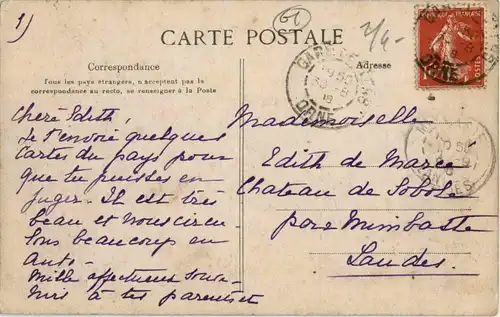 1)
61
2/6
CARTE POSTALE
Correspondance
Tous les pays étrangers, n'acceptent pas la
correspondance au recto, se renseigner à la Poste
Adresse
Chère Edith!
Je t'envoie quelques
Cartes du pays pour
que tu puisses en
juger. Il est très
beau et nous circu-
lons beaucoup en
auto.
Mille affectueux souve-
nirs à tes parents et
Mademoiselle
Edith de Marce
Chateau de Sobole
par Mimbaste
Landes.
ORNE
POSTES